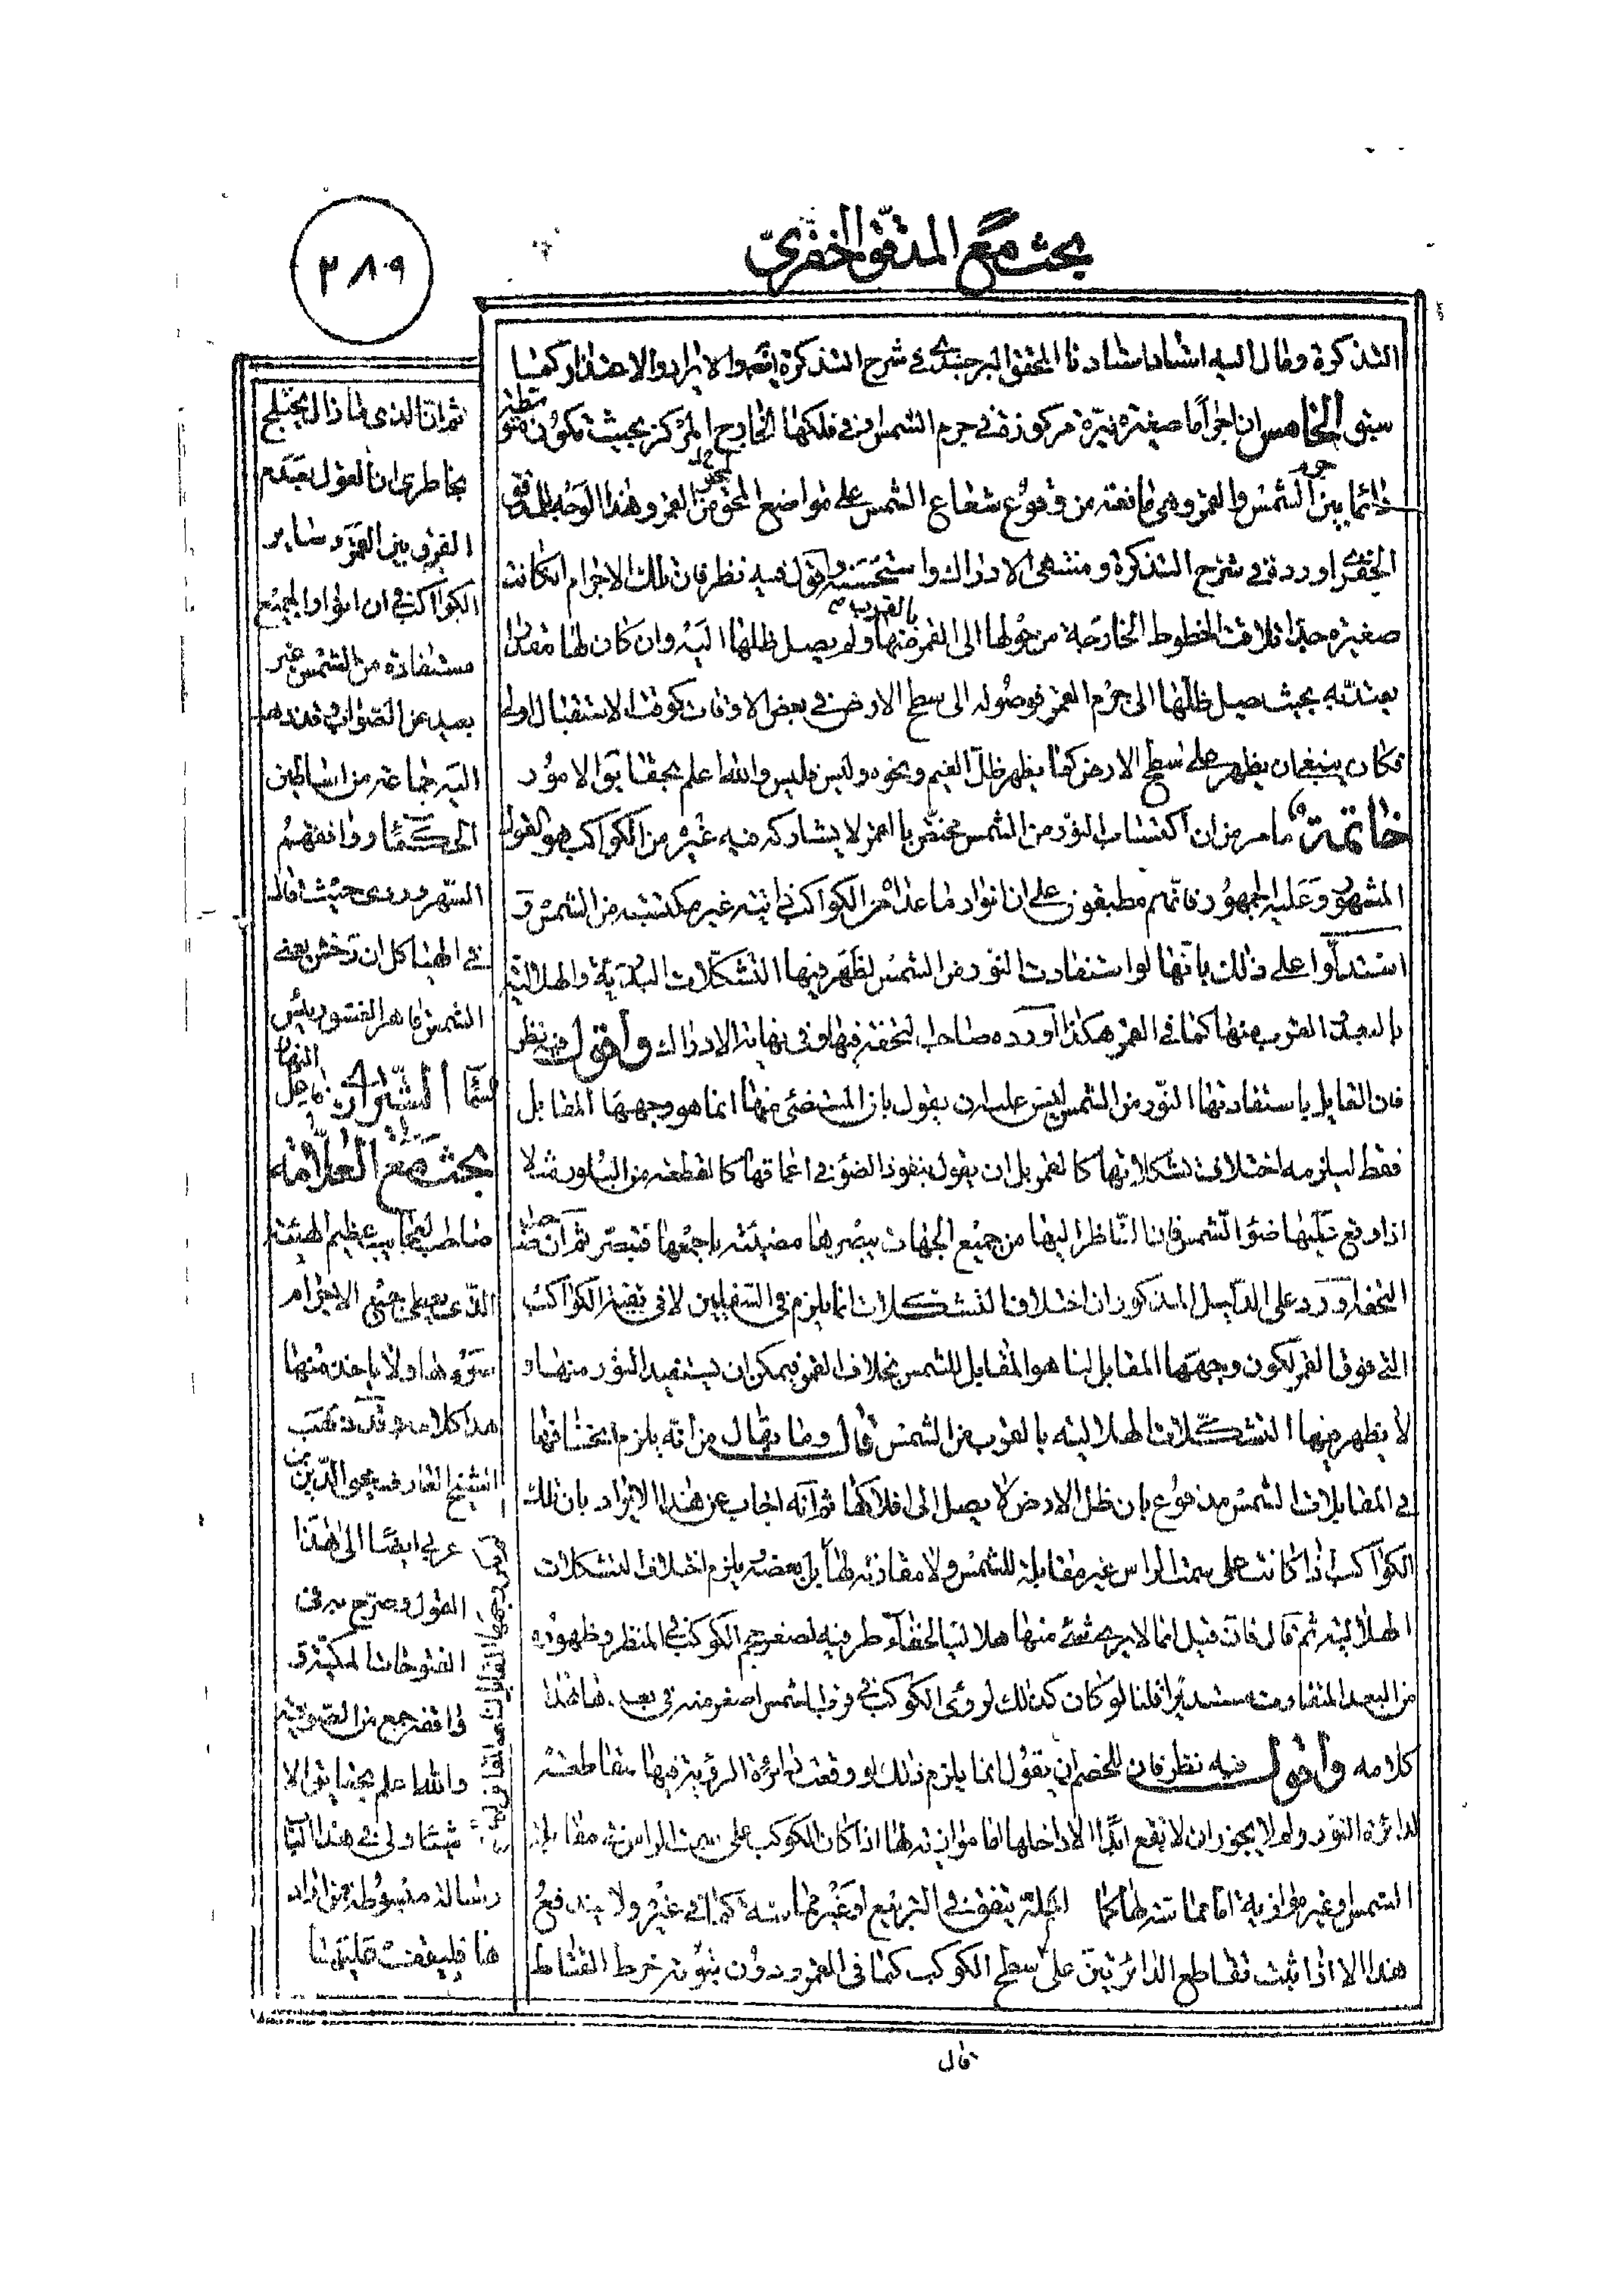 بحث مع المدقق الخفري
٢٨٩
التذكرة ومال اليه استاد استادنا المحقق البرجندي في شرح التذكرة ايضا والايراد والاعتذار كما
سبق الخامس ان اجراما صغيرة نيرة مركوزة في جرم الشمس او في فلكها الخارج المركز بحيث تكون متوسطة
دائما بين جرم الشمس والقمر وهي مانعة من وقوع شعاع الشمس على مواضع المحو من القمر وهذا الوجه للمدقق
الخفري اورده في شرح التذكرة ومنتهى الادراك واستحسنه واقول فيه نظر فان تلك الاجرام ان كانت
صغيرة جدا تلاقت الخطوط الخارجة من حولها الى القمر بالقرب منها ولم يصل ظلها اليه وان كان لها مقدار
يعتد به بحيث يصل ظلها الى جرم القمر فوصوله الى سطح الارض في بعض الاوقات كوقت الاستقبال اولى
فكان ينبغي ان يظهر على سطح الارض كما يظهر ظل الغيم ونحوه وليس فليس والله اعلم بحقايق الامور
خاتمة ما مر من ان اكتساب النور من الشمس مختص بالقمر لا يشاركه فيه غيره من الكواكب هو القول
المشهور وعليه الجمهور فانهم مطبقون على ان انوار ما عداه من الكواكب ذاتية غير مكتسبة من الشمس و
استدلوا على ذلك بانها لو استفادت النور من الشمس لظهر فيها التشكلات البدرية والهلالية
بالبعد والقرب منها كما في القمر هكذا اورده صاحب التحفة فيها وفي نهاية الادراك واقول فيه نظر
فان القايل باستفادتها النور من الشمس ليس عليه ان يقول بان المستضئ منها انما هو وجهها المقابل
فقط ليلزمه اختلاف تشكلاتها كالقمر بل ان يقول بنفوذ الضوء في اعماقها كالقطعة من البلور مثلا
اذا وقع عليها ضوء الشمس فان الناظر اليها من جميع الجهات يبصرها مضيئة باجمعها فتبصر ثم ان صاحب
التحفة اورد على الدليل المذكور ان اختلاف التشكلات انما يلزم في السفليين لا في بقية الكواكب
التي فوق القمر لكون وجهها المقابل لنا هو المقابل للشمس بخلاف القمر فيمكن ان يستفيد النور منها و
لا يظهر فيها التشكلات الهلالية بالقرب من الشمس قال وما يقال من انه يلزم انخسافها
في المقابلات الشمس مدفوع بان ظل الارض لا يصل الى افلاكها ثم انه اجاب عن هذا الايراد بان تلك
الكواكب اذا كانت على سمت الراس غير مقابلة للشمس ولا مقارنة لها بل بعضه يلزم اختلاف التشكلات
الهلالية ثم قال فان قيل انما لا يرى شئ منها هلاليا لخفاء طرفيه لصغر حجم الكوكب في المنظر وظهوره
من البعد المتفاوت مستديرا قلنا لو كان كذلك لرؤى الكوكب في قرب الشمس اصغر منه في بعدها هذا
كلامه واقول فيه نظر فان للخصم ان يقول انما يلزم ذلك لو وقعت دائرة الرؤية فيها مقاطعة
لدائرة النور ولم لا يجوز ان لا يقع ابدا الا داخلها اما موازية لها اذا كان الكوكب على سمت الراس في مقابلة
الشمس او غير موازية اما مماسة لها كما يتفق في التربيع او غير مماسة كما في غيره ولا يندفع
هذا الا اذا ثبت تقاطع الدائرتين على سطح الكوكب كما في القمر ودون ثبوته خرط القتاد
قال
ثم ان الذي ما زال يختلج
بخاطري ان القول بعدم
الفرق بين القمر وساير
الكواكب في ان انوار الجميع
مستفادة من الشمس غير
بعيد عن الصواب وقد ذهب
اليه جماعة من اساطين
الحكماء ووافقهم
السهروردي حيث قال
في الهياكل ان رخش يعني
الشمس قاهر الغسق رئيس
السماء فاعل النهار
بحث مع العلامة
صاحب العجايب عظيم الهيئة
الذي يعطي جميع الاجرام
ضوءها ولا ياخذ منها
هذا كلامه وقد ذهب
الشيخ العارف محيى الدين بن
عربي ايضا الى هذا
القول وصرح به في
الفتوحات المكية و
وافقه جمع من الصوفية
والله اعلم بحقايق الا
شياء ولي في هذا الباب
رسالة مبسوطة من اراد
ها فليقف عليها